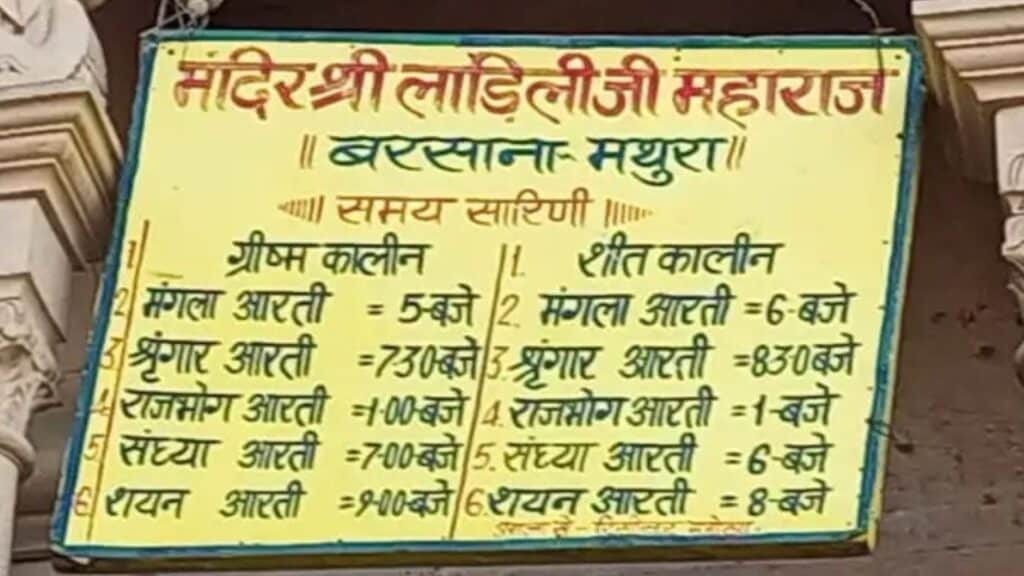 मंदिर श्री लाड़िलीजी महाराज
॥ बरसाना-मथुरा ॥
समय सारिणी
1 ग्रीष्म कालीन 1. शीत कालीन
2 मंगला आरती = 5-बजे 2. मंगला आरती = 6-बजे
3 श्रृंगार आरती = 730बजे 3. श्रृंगार आरती = 830बजे
4 राजभोग आरती = 1-00-बजे 4. राजभोग आरती = 1-बजे
5 संध्या आरती = 7-00-बजे 5. संध्या आरती = 6-बजे
6 शयन आरती = 9-00-बजे 6. शयन आरती = 8-बजे